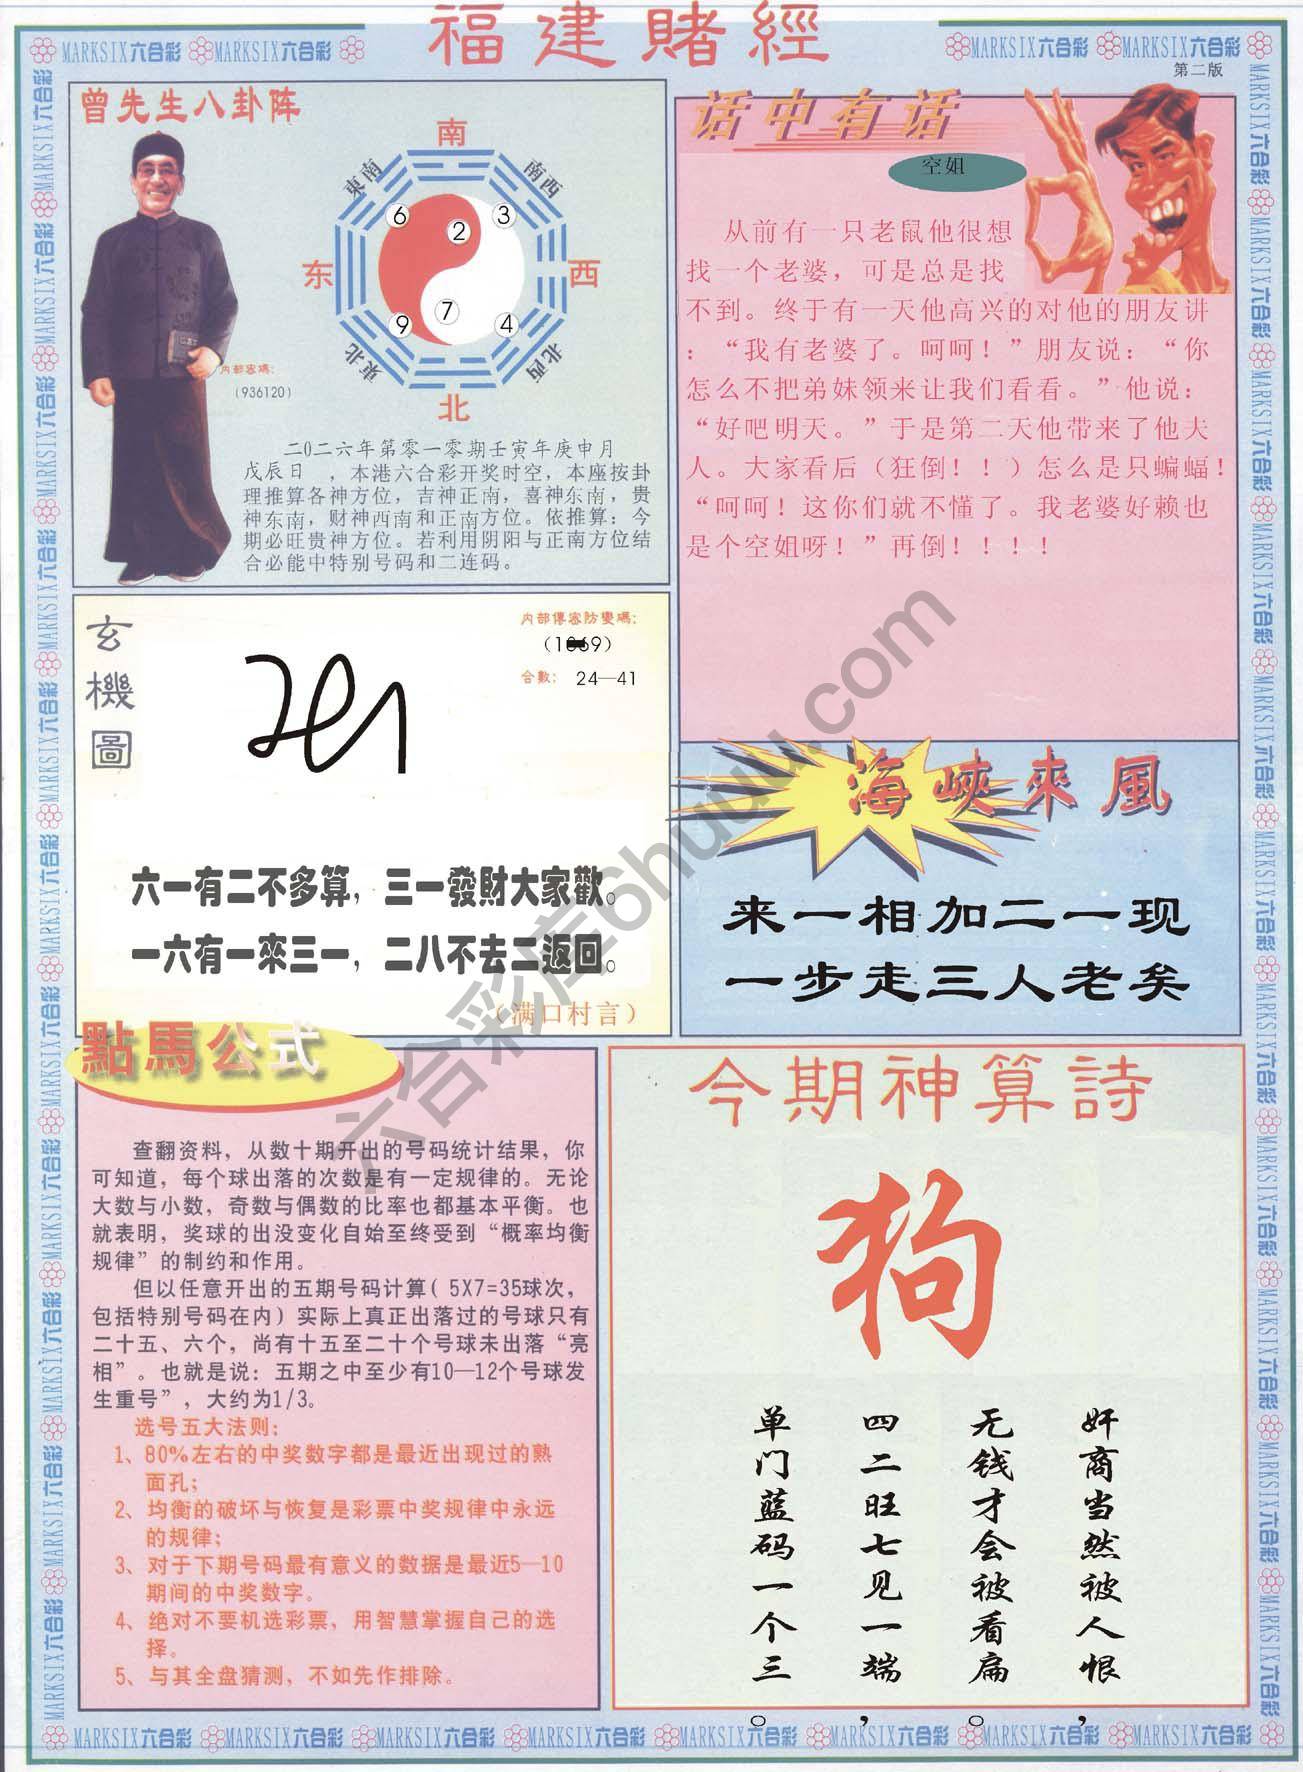 福建賭經
MARKSIX六合彩 MARKSIX六合彩
MARKSIX六合彩 MARKSIX六合彩
第二版
曾先生八卦阵
南
東南
南西
6
2
3
东
西
7
9
4
東北
北西
北
内部密碼:
(936120)
二0二六年第零一零期壬寅年庚申月
戊辰日 ，本港六合彩开奖时空，本座按卦
理推算各神方位，吉神正南，喜神东南，贵
神东南，财神西南和正南方位。依推算：今
期必旺贵神方位。若利用阴阳与正南方位结
合必能中特别号码和二连码。
话中有话
空姐
从前有一只老鼠他很想
找一个老婆，可是总是找
不到。终于有一天他高兴的对他的朋友讲
：“我有老婆了。呵呵！”朋友说：“你
怎么不把弟妹领来让我们看看。”他说：
“好吧明天。”于是第二天他带来了他夫
人。大家看后（狂倒！！）怎么是只蝙蝠！
“呵呵！这你们就不懂了。我老婆好赖也
是个空姐呀！”再倒！！！！
玄機圖
内部傳密防變碼:
合數: 24—41
六一有二不多算，三一發財大家歡。
一六有一來三一，二八不去二返回。
（满口村言）
海峽來風
来一相加二一现
一步走三人老矣
點馬公式
查翻资料，从数十期开出的号码统计结果，你
可知道，每个球出落的次数是有一定规律的。无论
大数与小数，奇数与偶数的比率也都基本平衡。也
就表明，奖球的出没变化自始至终受到“概率均衡
规律”的制约和作用。
但以任意开出的五期号码计算( 5X7=35球次，
包括特别号码在内）实际上真正出落过的号球只有
二十五、六个，尚有十五至二十个号球未出落“亮
相”。也就是说：五期之中至少有10—12个号球发
生重号”，大约为1/3。
选号五大法则：
1、80%左右的中奖数字都是最近出现过的熟
面孔；
2、均衡的破坏与恢复是彩票中奖规律中永远
的规律；
3、对于下期号码最有意义的数据是最近5—10
期间的中奖数字。
4、绝对不要机选彩票，用智慧掌握自己的选
择。
5、与其全盘猜测，不如先作排除。
今期神算詩
狗
奸商当然被人恨，
无钱才会被看扁。
四二旺七见一端，
单门蓝码一个三。
六合彩库6huuu.com
MARKSIX六合彩 MARKSIX六合彩 MARKSIX六合彩 MARKSIX六合彩 MARKSIX六合彩 MARKSIX六合彩 MARKSIX六合彩 MARKSIX六合彩